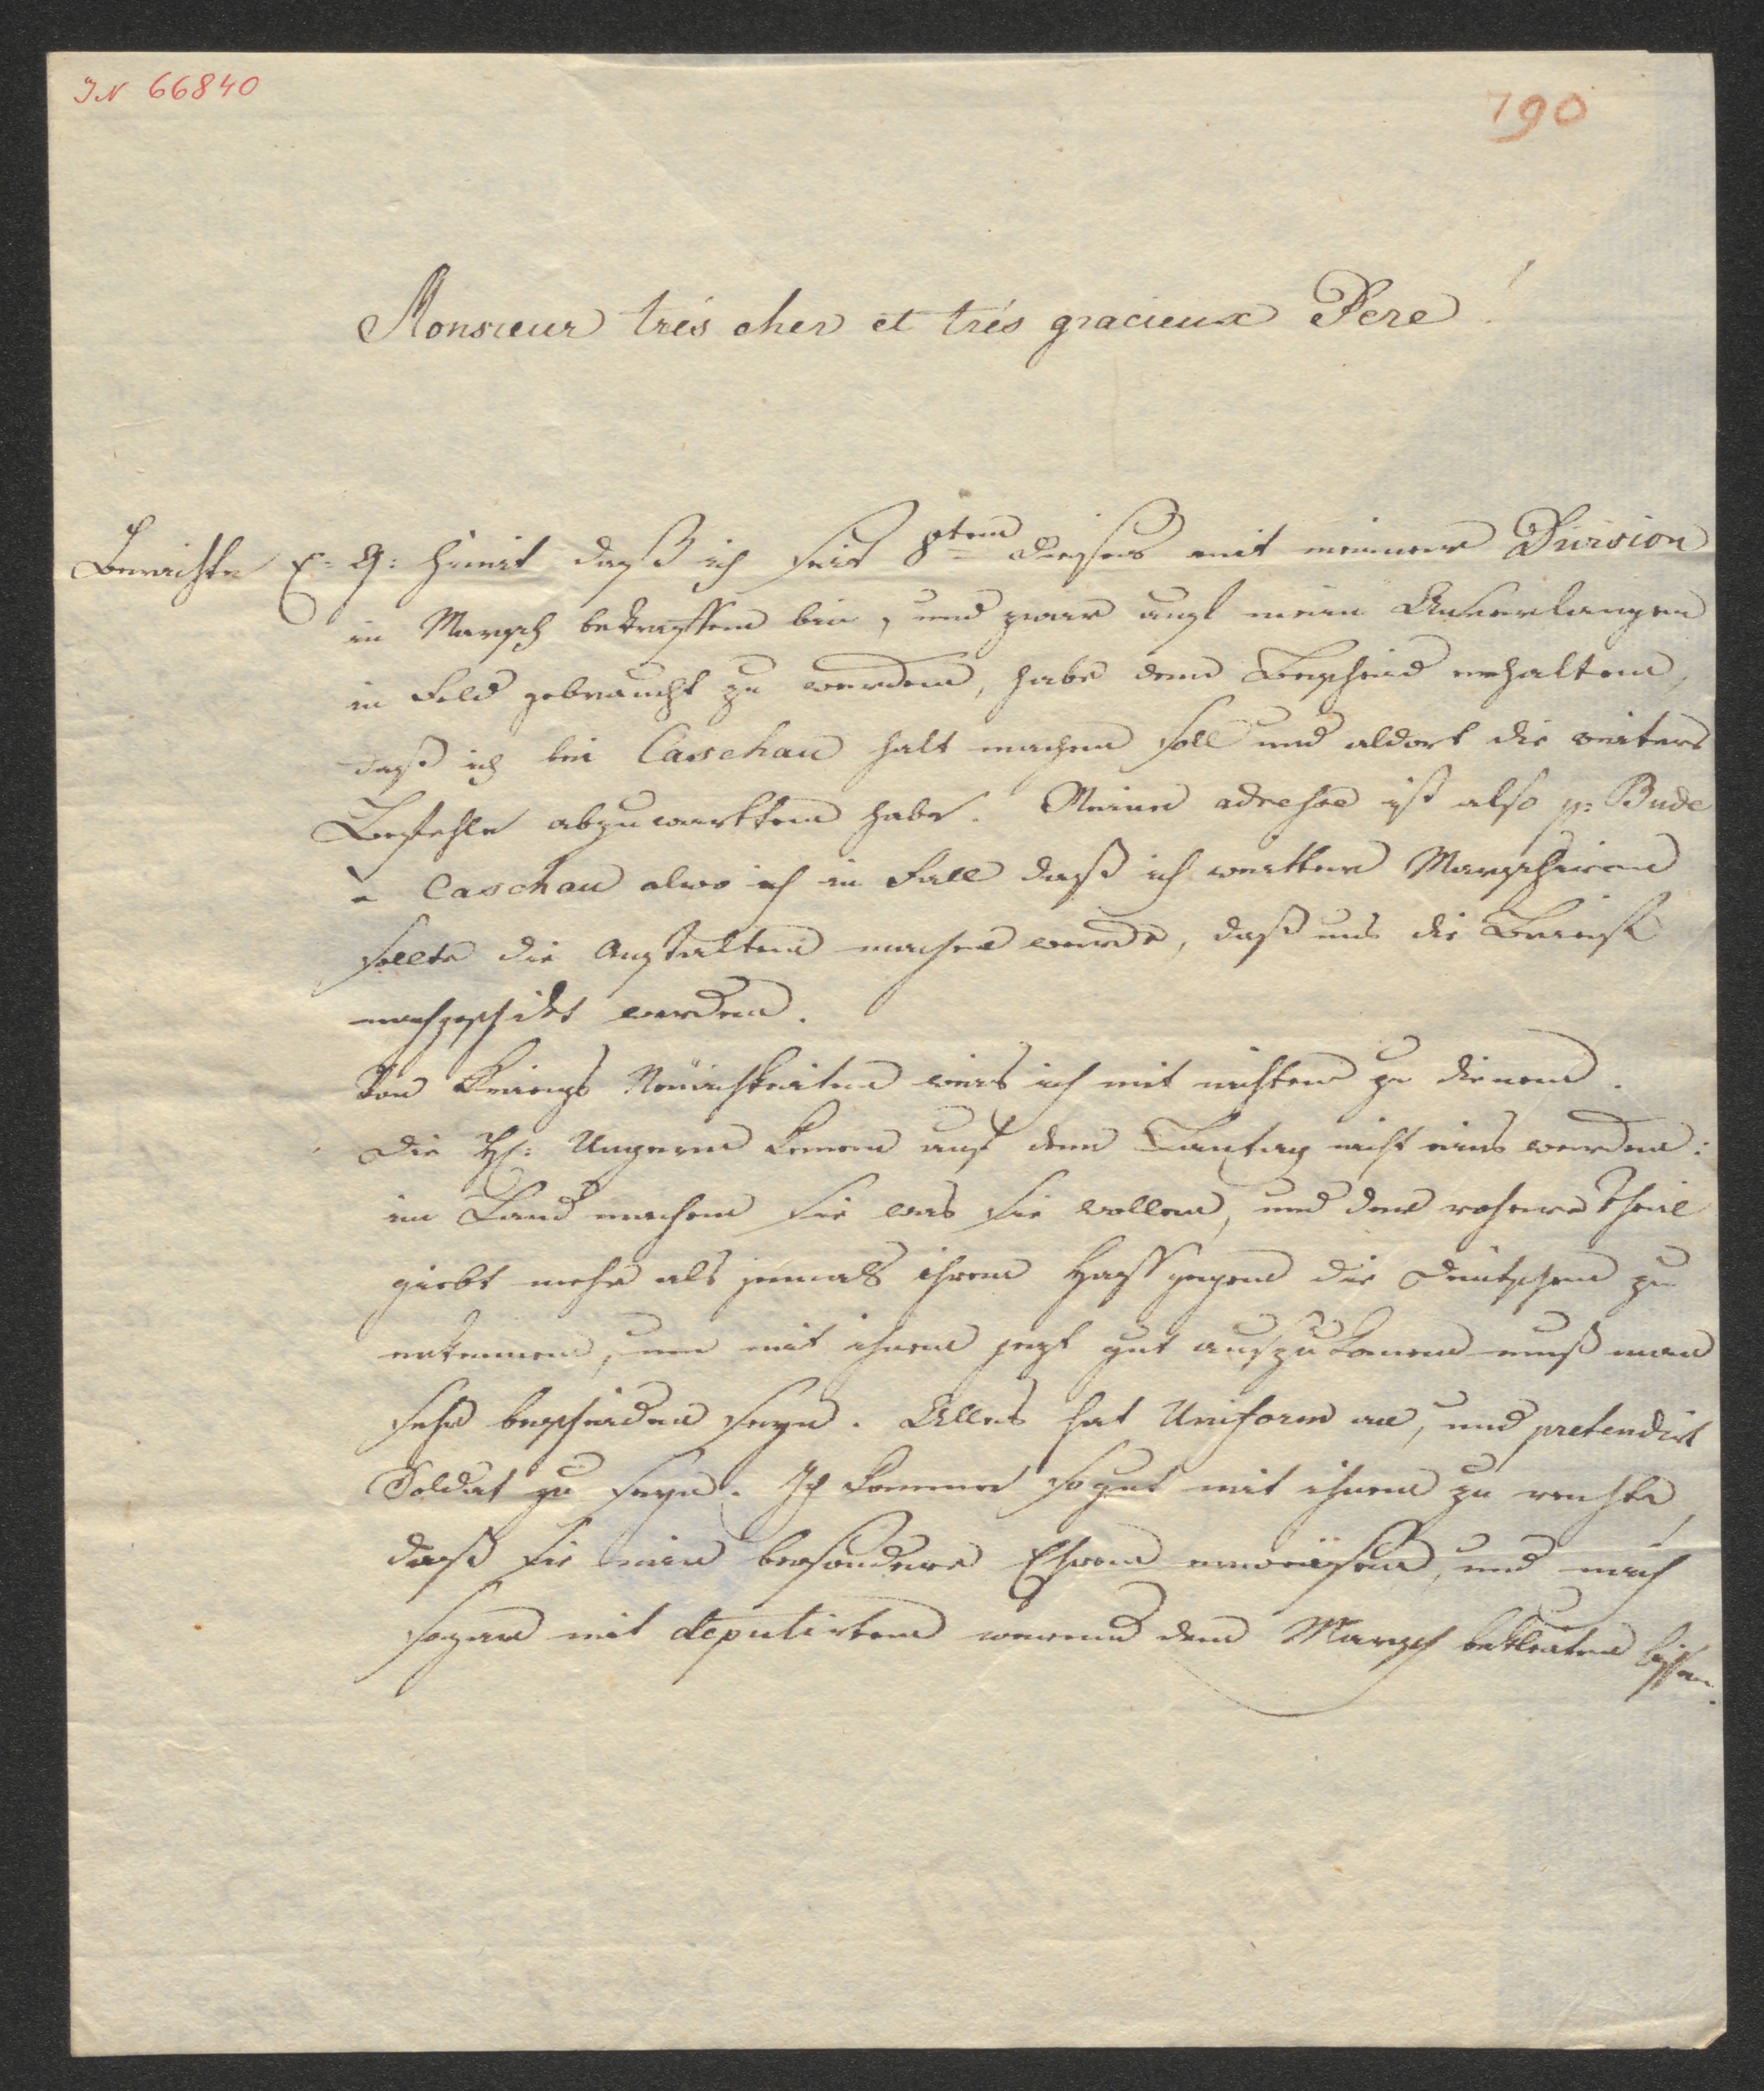 IN 66840
190
Monsieur trés cher et trés gracieux Pere!
Berichte E: G: hiemit daß ich seit 8ten dieses mit meiner Division
in Marsch betreffend bin, und zwar auf mein Anverlangen
in Feld gebraucht zu werden, habe den Bescheid erhalten,
daß ich bei Caschau halt machen soll und aldort die weitere
Befehle abzuwartten habe. Meine adresse ist also p: Bude
a Caschau alwo ich in Fall daß ich weitter Marschiren
sollte die Anstalten machen werde, daß uns die Briefe
nachgeschikt werden.
Von Kriegs Neüichkeiten weis ich mit nichten zu dienen.
Die H: Ungern kenen auf den Lantag nicht eins werden:
im Land machen sie was sie wollen, und der rohere Theil
giebt mehr als jemals ihren Hass gegen die Deütschen zu
erkennen, um mit ihnen jezt gut auszukomen muß man
sehr bescheiden seyn. Alles hat Uniform an, und pretendirt
Soldat zu seyn. Ich komme so gut mit ihnen zu rechte,
daß sie mir besondere Ehren erweisen, und mich
sogar mit deputirten werend den Marsch bekleiten lissen.